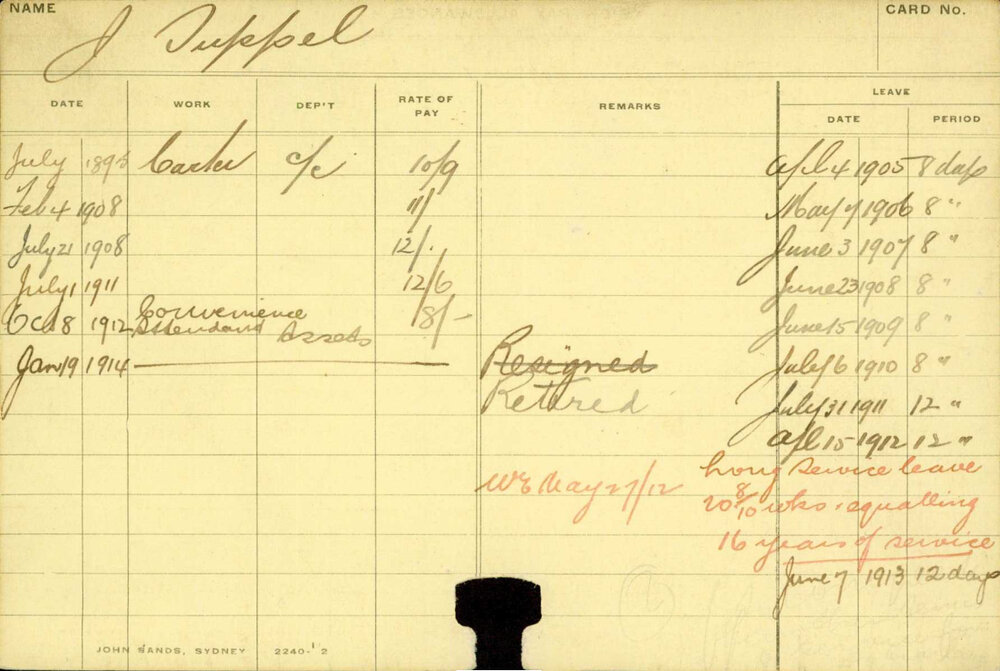 NAME J Tuppel CARD No.
DATE WORK DEP'T RATE OF PAY REMARKS LEAVE
DATE PERIOD
July 1895 Carter c/c 10/9 Apl 4 1905 8 days
Feb 4 1908 11/ May 7 1906 8 "
July 21 1908 12/. June 3 1907 8 "
July 1 1911 12/6 June 23 1908 8 "
Oct 8 1912 Convenience Attendant Assets 8/- June 15 1909 8 "
Jan 19 1914 Resigned July 6 1910 8 "
Retired July 31 1911 12 "
Apl 15 1912 12 "
Long service leave
WE May 27/12 20 8/10 wks equalling
16 years of service
June 7 1913 12 days
JOHN SANDS, SYDNEY 2240-12